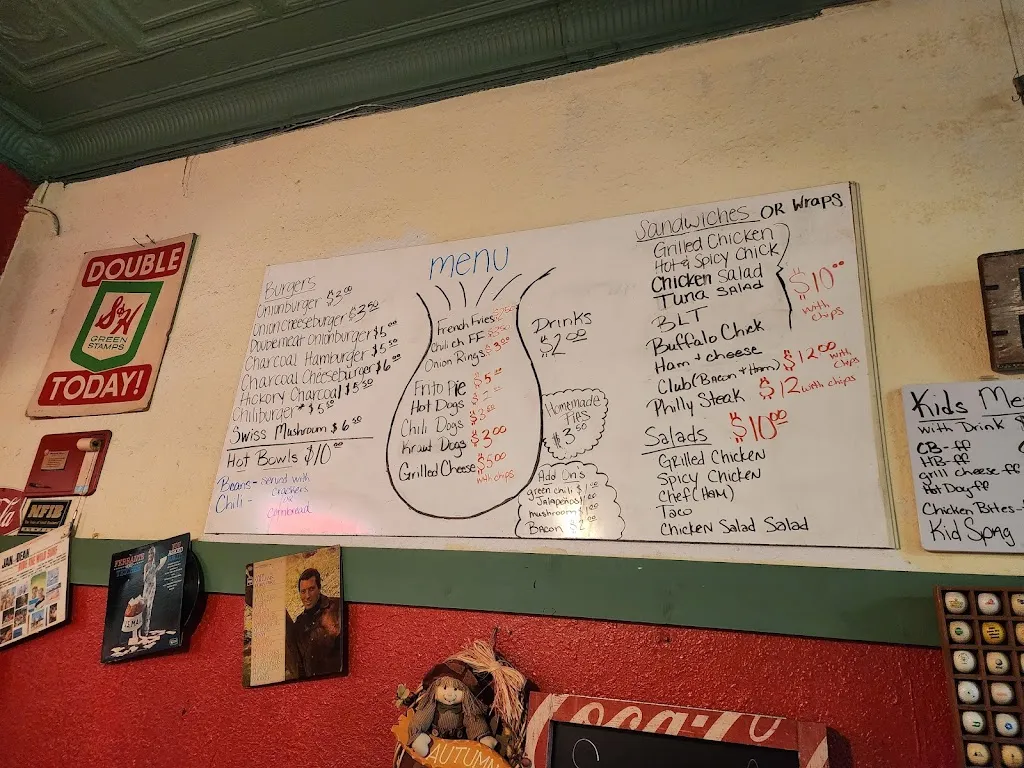 DOUBLE
S&H
GREEN
STAMPS
TODAY!
menu
Burgers
Onionburger $3.00
Onion Cheeseburger $3.50
Doublemeat Onionburger $5.00
Charcoal Hamburger $5.50
Charcoal Cheeseburger $6.00
Hickory Charcoal $5.50
Chiliburger $5.50
Swiss Mushroom $6.50
Hot Bowls $10.00
Beans - served with
Chili - crackers
or
cornbread
French Fries
Chili ch FF
Onion Rings
Frito Pie $5
Hot Dogs
Chili Dogs
Kraut Dogs $3.00
Grilled Cheese $5.00
with chips
Drinks
$2.00
Homemade
Pies
$3.50
Add On's
green chili
Jalapeños
mushroom
Bacon $2
Sandwiches OR Wraps
Grilled Chicken
Hot & Spicy Chick
Chicken Salad
Tuna Salad
$10.00
with
chips
BLT
Buffalo Chick
Ham & cheese
Club (Bacon & Ham) $12.00 with chips
Philly Steak $12 with chips
Salads $10.00
Grilled Chicken
Spicy Chicken
Chef (HAM)
Taco
Chicken Salad Salad
Kids Me
with Drink
CB-ff
HB-ff
grill cheese-ff
Hot Dog ff
Chicken Bites-
Kid Spag
NFIB
JAN & DEAN
AUTUMN
Coca-Co